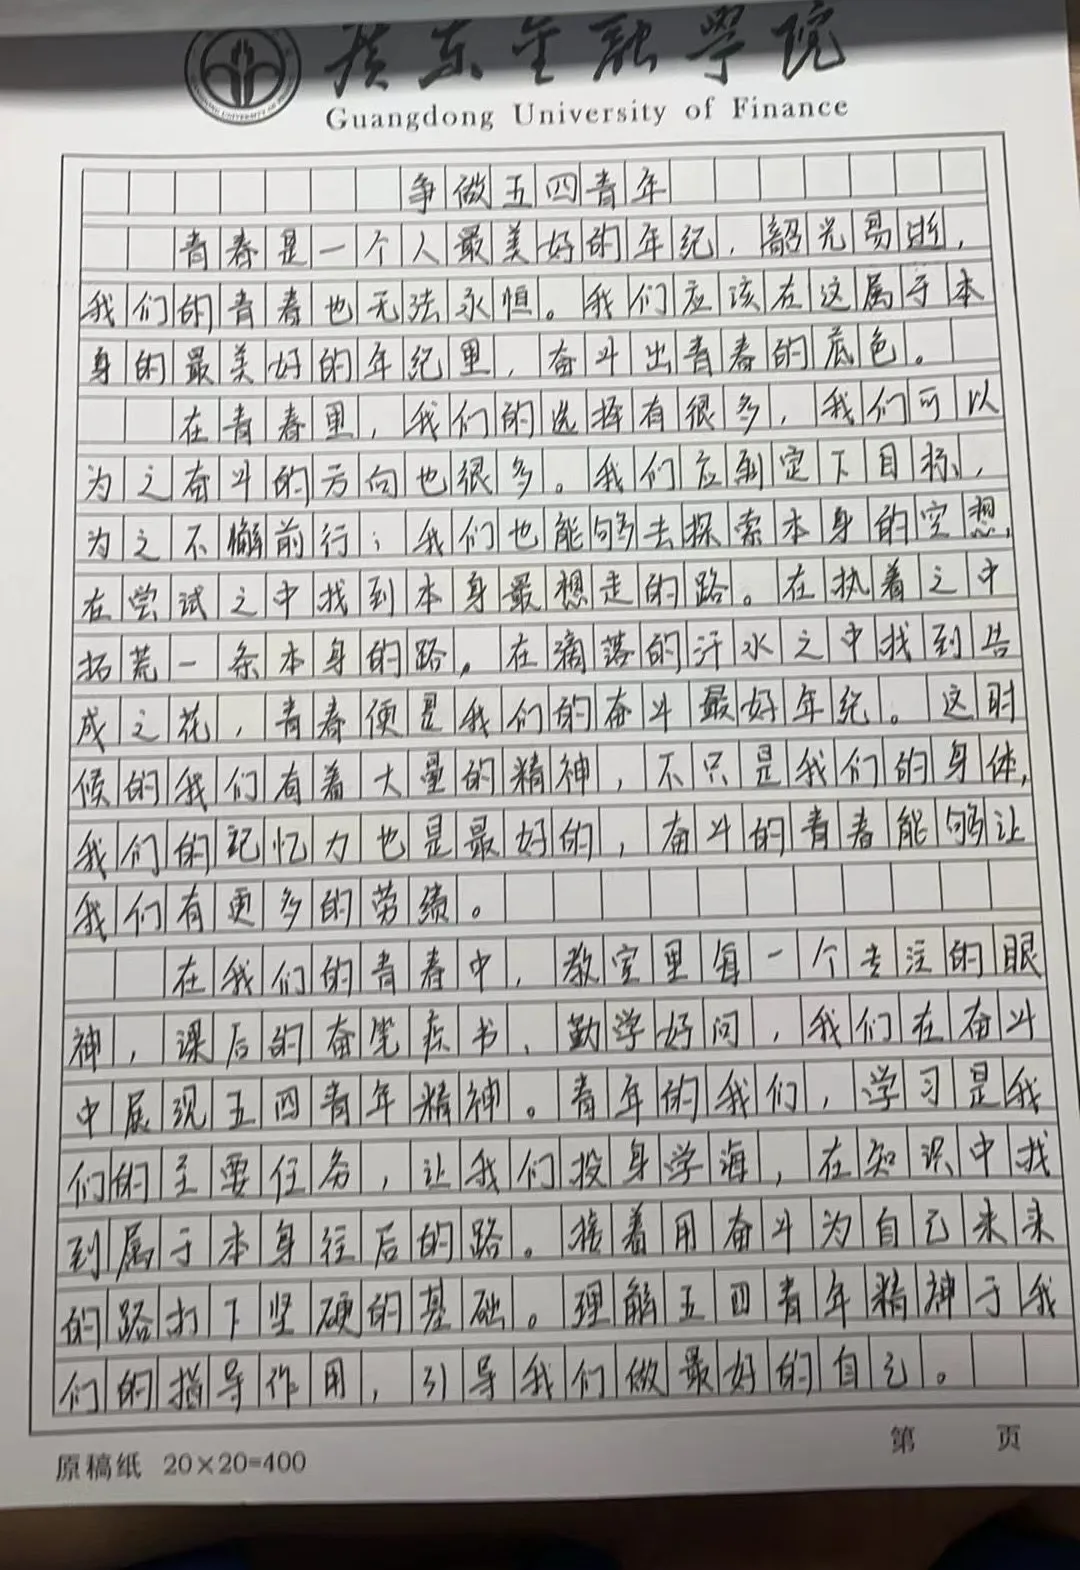 广东金融学院
Guangdong University of Finance
争做五四青年
青春是一个人最美好的年纪，韶光易逝，
我们的青春也无法永恒。我们应该在这属于本
身的最美好的年纪里，奋斗出青春的底色。
在青春里，我们的选择有很多，我们可以
为之奋斗的方向也很多。我们应制定下目标，
为之不懈前行；我们也能够去探索本身的空想，
在尝试之中找到本身最想走的路。在执着之中
拓荒一条本身的路，在滴落的汗水之中找到告
成之花，青春便是我们的奋斗最好年纪。这时
候的我们有着大量的精神，不只是我们的身体，
我们的记忆力也是最好的，奋斗的青春能够让
我们有更多的劳绩。
在我们的青春中，教室里每一个专注的眼
神，课后的奋笔疾书、勤学好问，我们在奋斗
中展现五四青年精神。青年的我们，学习是我
们的主要任务，让我们投身学海，在知识中找
到属于本身往后的路。接着用奋斗为自己未来
的路打下坚硬的基础。理解五四青年精神于我
们的指导作用，引导我们做最好的自己。
原稿纸 20×20=400
第 页